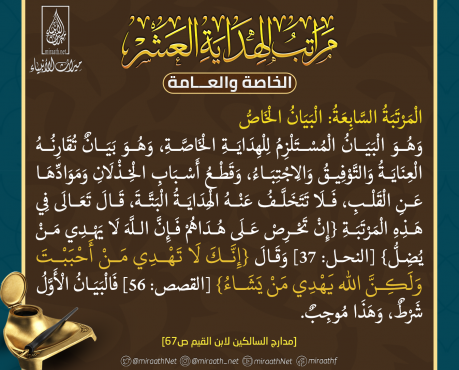 miraath.net
ميراث الأنبياء
مراتب الهداية العشر
الخاصة والعـــامة
الْمَرْتَبَةُ السَّابِعَةُ: الْبَيَانُ الْخَاصُّ
وَهُوَ الْبَيَانُ الْمُسْتَلْزِمُ لِلْهِدَايَةِ الْخَاصَّةِ، وَهُوَ بَيَانٌ تُقَارِنُهُ
الْعِنَايَةُ وَالتَّوْفِيقُ وَالِاجْتِبَاءُ، وَقَطْعُ أَسْبَابِ الْخِذْلَانِ وَمَوَادِّهَا
عَنِ الْقَلْبِ، فَلَا تَتَخَلَّفُ عَنْهُ الْهِدَايَةُ الْبَتَّةَ، قَالَ تَعَالَى فِي
هَذِهِ الْمَرْتَبَةِ {إِنْ تَحْرِصْ عَلَى هُدَاهُمْ فَإِنَّ اللَّهَ لَا يَهْدِي مَنْ
يُضِلُّ} [النحل: 37] وَقَالَ {إِنَّكَ لَا تَهْدِي مَنْ أَحْبَبْتَ
وَلَكِنَّ اللَّهَ يَهْدِي مَنْ يَشَاءُ} [القصص: 56] فَالْبَيَانُ الْأَوَّلُ
شَرْطٌ، وَهَذَا مُوجِبٌ.
[مدارج السالكين لابن القيم ص67]
@miraathNet @miraath_net miraathNet miraathf